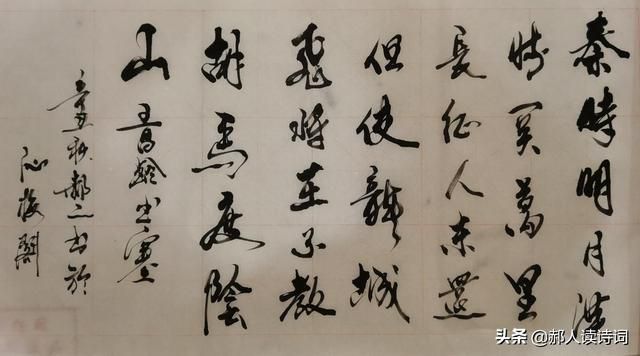 秦時明月漢
時關萬里
長征人未還
但使龍城
飛將在不教
胡馬度陰
山 王昌齡出塞
辛丑秋郝書於
沁梅閣
头条 @郝人读诗词